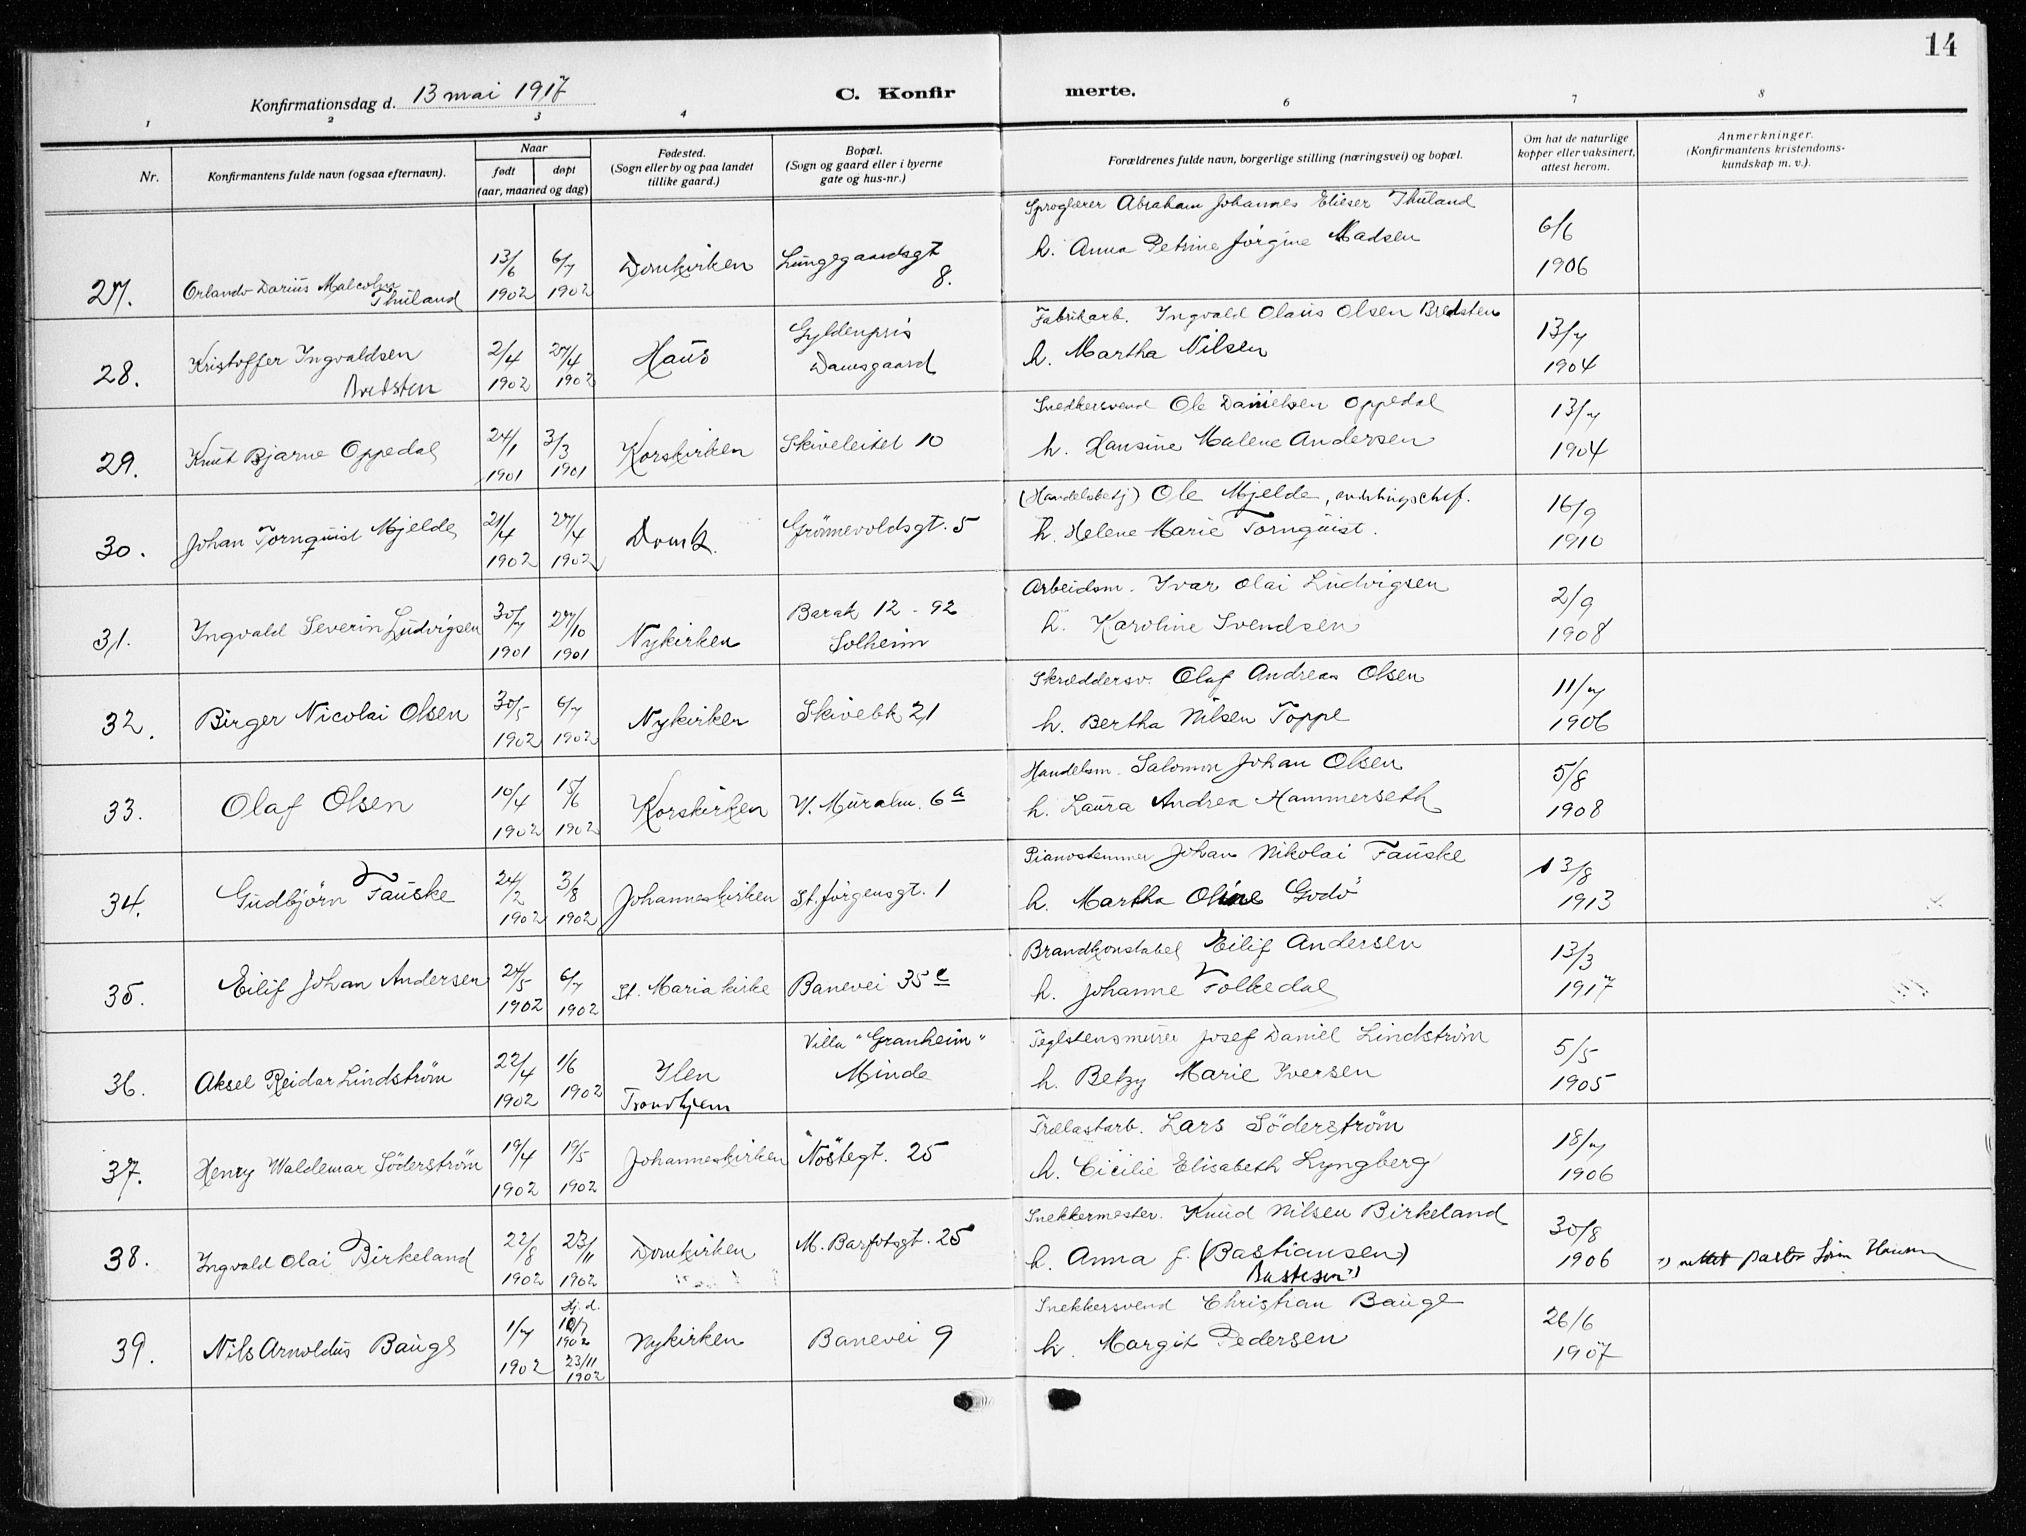 14
Konfirmationsdag d. 13 mai 1917
C. Konfirmerte.
1 2 3 4 6 7 8
Nr. Konfirmantens fulde navn (ogsaa efternavn). Naar født døpt (aar, maaned og dag) Fødested. (Sogn eller by og paa landet tillike gaard.) Bopæl. (Sogn og gaard eller i byerne gate og hus-nr.) Forældrenes fulde navn, borgerlige stilling (næringsvei) og bopæl. Om hat de naturlige kopper eller vaksinert, attest herom. Anmerkninger. (Konfirmantens kristendomskundskap m. v.).
27. Orlando Darius Malcolm Thuland 13/6 1902 6/7 1902 Domkirken Lungegaardsgt 8. Sproglærer Abraham Johannes Elieser Thuland
h. Anna Petrine Jørgine Madsen 6/6 1906
28. Kristoffer Ingvaldsen Bredsten 2/4 1902 27/4 1902 Haus Gyldenpris Damsgaard Fabrikarb. Ingvald Olaus Olsen Bredsten
h. Martha Nilsen 13/7 1904
29. Knut Bjarne Oppedal 24/1 1901 3/3 1901 Korskirken Skiveleitet 10 Snedkersvend Ole Danielsen Oppedal
h. Hansine Malene Andersen 13/7 1904
30. Johan Tornquist Mjelde 21/4 1902 27/4 1902 Domk. Grönnevoldsgt. 5 (Handelsbetj) Ole Mjelde,
h. Helene Marie Tornquist. 16/9 1910
31. Ingvald Severin Ludvigsen 30/7 1901 27/10 1901 Nykirken Barak 12 - 92 Solheim Arbeidsm. Ivar Olai Ludvigsen
h. Karoline Svendsen 2/9 1908
32. Birger Nicolai Olsen 30/5 1902 6/7 1902 Nykirken Skivebk 21 Skræddersv. Olaf Andreas Olsen
h. Bertha Nilsen Toppe 11/7 1906
33. Olaf Olsen 10/4 1902 15/6 1902 Korskirken V. Muralm. 6a Handelsm. Salomon Johan Olsen
h. Laura Andrea Hammerseth 5/8 1908
34. Gudbjörn Fauske 24/2 1902 3/8 1902 Johanneskirken St. Jörgensgt. 1 Pianostemmer Johan Nikolai Fauske
h. Martha Oline Godö 13/8 1913
35. Eilif Johan Andersen 24/5 1902 6/7 1902 St. Maria kirke Banevei 35 c Brandkonstabel Eilif Andersen
h. Johanne Folkedal 13/3 1917
36. Aksel Reidar Lindström 22/4 1902 1/6 1902 Ilen Trondhjem Villa "Granheim" Minde Teglstensmurer Josef Daniel Lindström
h. Betzy Marie Iversen 5/5 1905
37. Henry Waldemar Söderström 19/4 1902 19/5 1902 Johanneskirken Nöstegt. 25 Trælastarb. Lars Söderström
h. Cicilie Elisabeth Lyngberg 18/7 1906
38. Ingvald Olai Birkeland 22/8 1902 23/11 1902 Domkirken M. Barfotsgt. 25 Snekkermester. Knud Nilsen Birkeland
h. Anna J. (Bastiansen) 30/8 1906
39. Nils Arnoldus Bauge 1/7 1902 Hj. d. 10/7 1902 23/11 1902 Nykirken Banevei 9 Snekkersvend Christian Bauge
h. Margit Pedersen 26/6 1907